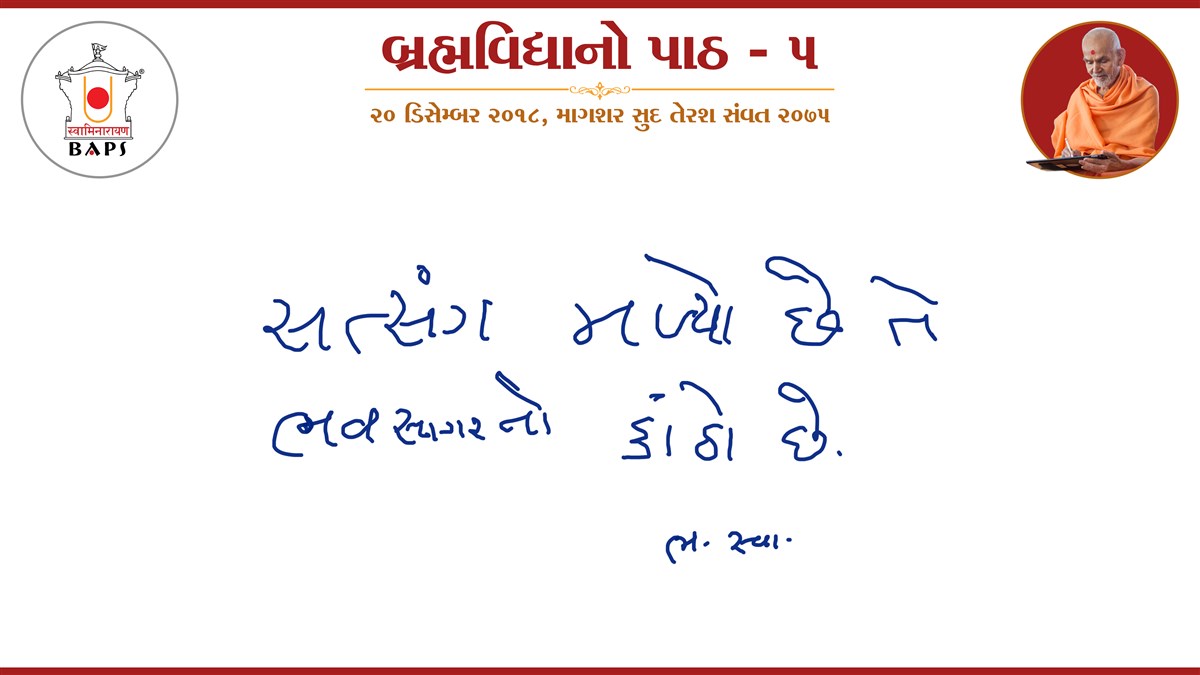 બ્રહ્મવિદ્યાનો પાઠ - ૫
૨૦ ડિસેમ્બર ૨૦૧૮, માગશર સુદ તેરશ સંવત ૨૦૭૫
स्वामिनारायण
®
BAPS
સત્સંગ મળ્યો છે તે
ભવસાગરનો કાંઠો છે.
ભ. સ્વા.